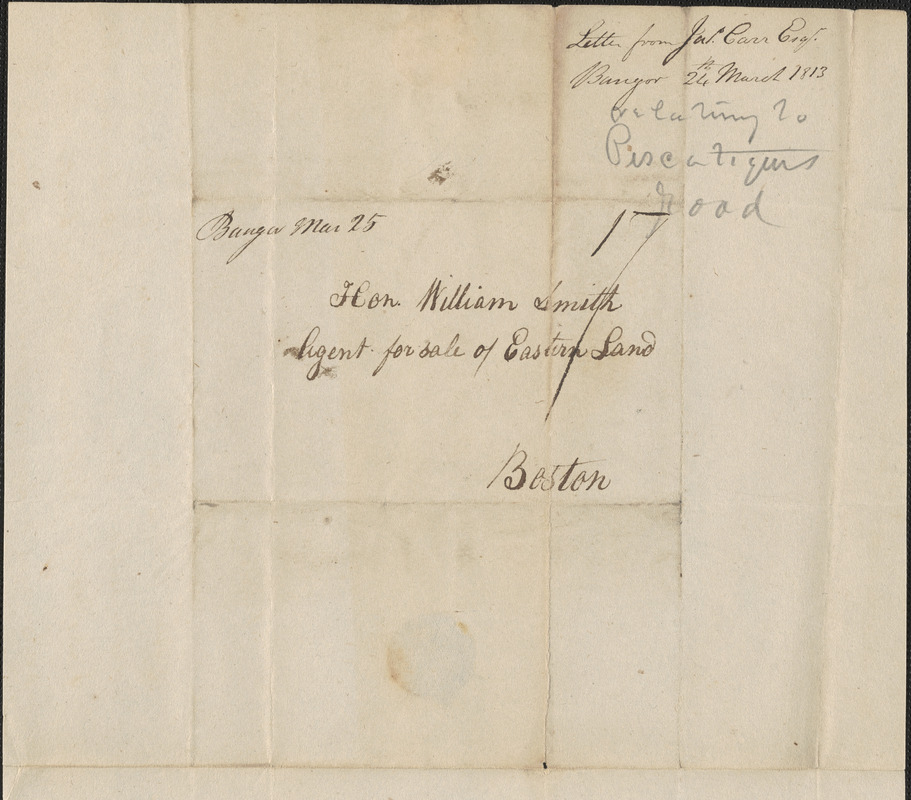 Letter from Jas. Carr Esqr.
Bangor 24th March 1813
relating to
Piscatiquis
Road
Bangor Mar 25
17
Hon. William Smith
Agent for sale of Eastern Land
Boston